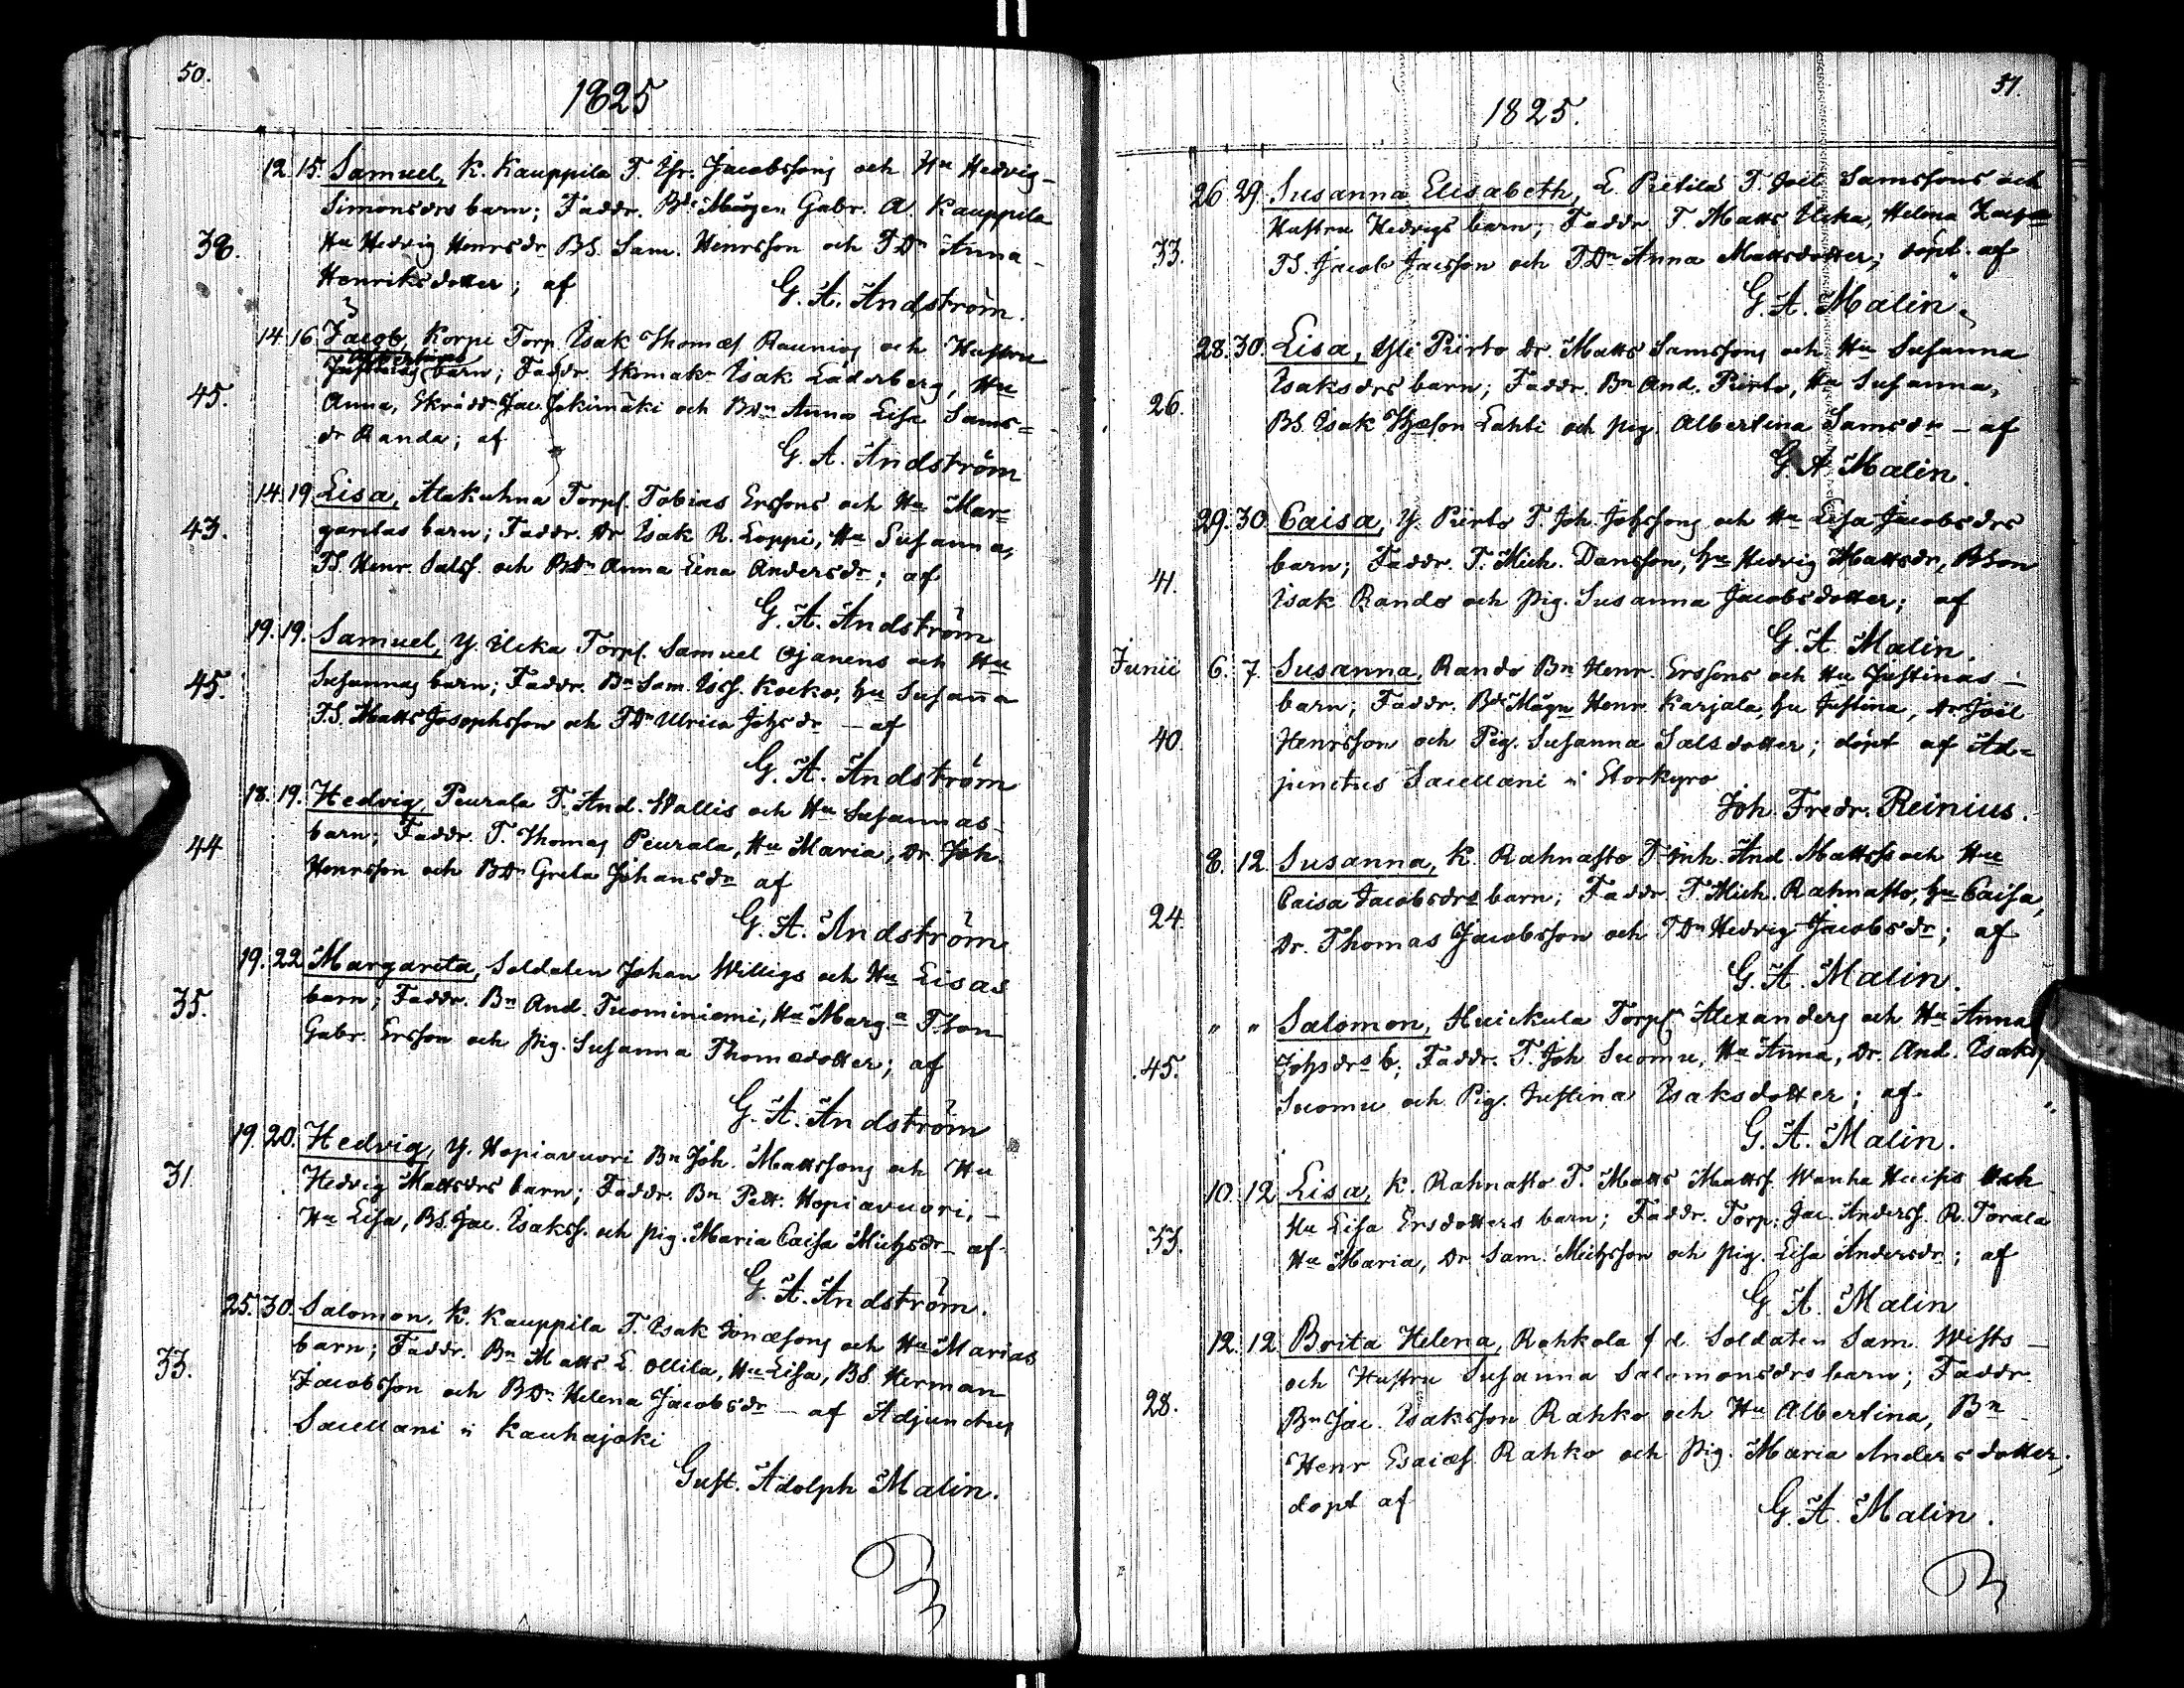 50.
1825
12. 15. Samuel, K. Kauppila T. Efr. Jacobssons och Hu Hedvig
Simonsdrs barn; Faddr. Bde Mågen Gabr. A. Kauppila
38. Hu Hedvig Henrsdr BS. Sam. Henrsson och TDr Anna
Henriksdotter; af
G. A. Andström.
14. 16. Jacob, Korpi Torp. Isak Thomæs. Raunios och Hustru
Albertinas
barn; Faddr. Skomak. Isak Läderberg, Hu
45. Anna, Skrädd. Jac. Jokimäki och BDr Anna Lisa Sams=
dr Randa; af
G. A. Andström
14. 19. Lisa, Alakuhna Torpf. Tobias Erssons och Hu Mar=
43. garetas barn; Faddr. Dr Isak R. Loppi, Hu Susanna,
TS. Henr. Salss. och BDr Anna Lena Andersdr; af
G. A. Andström
19. 19. Samuel, Y. Ilcka Torpf. Samuel Ojanens och Hu
45. Susannas barn; Faddr. Bn Sam. Iss. Kocko, hu Susana
TS. Matts Josephsson och TDr Ulrica Johsdr – af
G. A. Andström
18. 19. Hedvig, Peurala T. And. Wallis och Hu Susannas
44 barn; Faddr. T. Thomas Peurala, Hu Maria, Dr. Joh.
Henrsson och BDr Greta Johansdr af
G. A. Andström
19. 22 Margareta, Soldaten Johan Willigs och Hu Lisas
35. barn; Faddr. Bn And. Tuominiemi, Hu Marg.a TSon
Gabr. Ersson och pig. Susanna Thomædotter; af
G. A. Andström
19. 20. Hedvig, Y. Hopiavuori Bn Joh. Mattssons och Hu
31 Hedvig Mattsdrs barn; Faddr. Bn Pett. Hopiavuori,
Hu Lisa, BS. Jac. Isakss. och pig. Maria Caisa Michsdr – af
G. A. Andström.
25. 30. Salomon, K. Kauppila T. Isak Jonæsons och Hu Marias
33. barn; Faddr. Bn Matts L. Ollila, Hu Lisa, BS. Herman
Jacobsson och BDr Helena Jacobsdr – af Adjunctus
Sacellani i Kauhajoki
Gust. Adolph Malin.
51.
1825.
26. 29. Susanna Elisabeth, L. Pietilä T. Joel Samssons och
Hustru Hedvigs barn; Faddr. T. Matts Ilcka, Helena
33. TS. Jacob Jacsson och TDr Anna Mattsdotter; döpt af
G. A. Malin.
28. 30. Lisa, Yli Piirto Dr. Matts Samssons och Hu Susanna
26. Isaksdrs barn; Faddr. Bn And. Piirto, Hu Susanna,
BS. Isak Thæson Lahti och pig. Albertina Samsdr – af
G. A. Malin.
29. 30. Caisa, Y. Piirto T. Joh. Johssons och Hu Lisa Jacobsdrs
41. barn; Faddr. T. Mich. Dansson, hu Hedvig Mattsdr, BSon
Isak Rando och pig. Susanna Jacobsdotter; af
G. A. Malin.
Junii 6. 7. Susanna, Rando Bn Henr. Erssons och Hu Justinas
barn; Faddr. Bde Mågn Henr. Karjala, hu Justina, Dr. Joël
40. Henrsson och Pig. Susanna Salsdotter; döpt af Ad=
junctus Sacellani i Storkyro
Joh. Fredr. Reinius.
8. 12. Susanna, K. Rahnasto T. Inh. And. Mattss och Hu
Caisa Jacobsdrs barn; Faddr. T. Mich. Rahnasto, hu Caisa,
24. Dr. Thomas Jacobsson och TDr Hedvig Jacobsdr; af
G. A. Malin.
" " Salomon, Huickula Torpf. Alexanders och Hu Anna
45. Johsdrs b; Faddr. T. Joh. Suomu, Hu Anna, Dr. And. Isaks.
Suomu och Pig. Justina Isaksdotter; af
G. A. Malin.
10. 12 Lisa, K. Rahnasto T. Matts Mattss. Wanha Huips och
33. Hu Lisa Ersdotters barn; Faddr. Torp. Jac. Anderss. R. Torala
Hu Maria, Dr. Sam. Michsson och pig. Lisa Andersdr; af
G. A. Malin
12. 12 Brita Helena, Rahkola f d Soldaten Sam. Wists
och Hustru Susanna Salomonsdrs barn; Faddr.
28. Bn Jac. Isaksson Rahko och Hu Albertina, Bn
Henr Esaiæs. Rahko och pig. Maria Andersdotter,
döpt af
G. A. Malin.